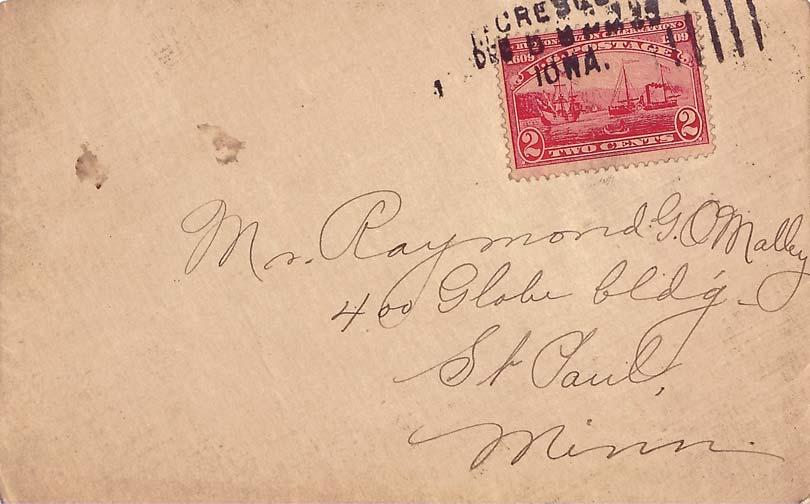 CRES
IOWA.
HUDSON-FULTON CELEBRATION
1609 1909
U.S. POSTAGE
2 2
TWO CENTS
Mr. Raymond G. O'Malley
400 Globe bldg.
St Paul,
Minn.